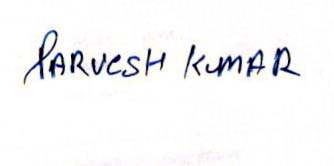 PARVESH KUMAR